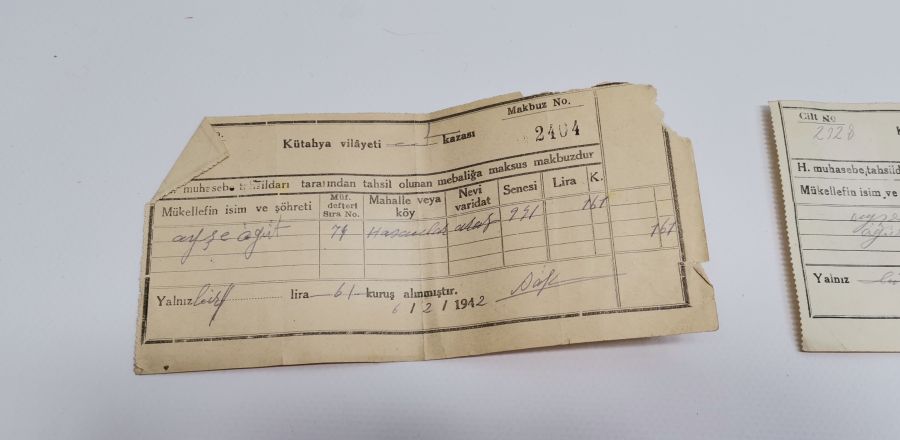 Makbuz No.
Kütahya vilâyeti kazası 2404
muhasebe tahsildarı tarafından tahsil olunan mebaliğa maksus makbuzdur
Mükellefin isim ve şöhreti Mük. defteri Sıra No. Mahalle veya köy Nevi varidat Senesi Lira K.
ayşe öğüt 79 161
161
Yalnız bir lira 61 kuruş alınmıştır.
6 / 2 / 1942
Cilt No
2928
H. muhasebe, tahsild
Mükellefin isim ve
ayşe
öğü
Yalnız